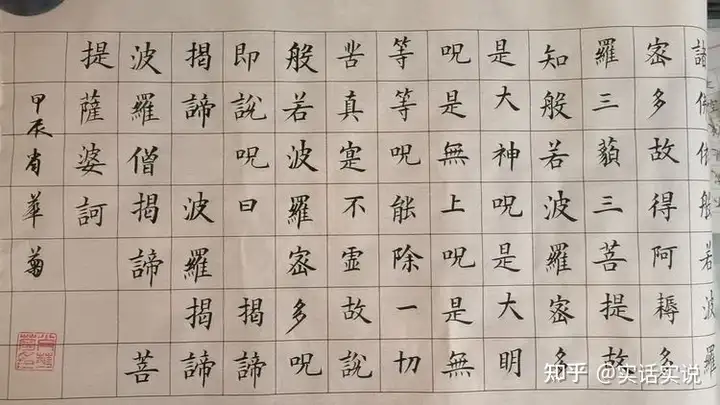 諸佛依般若波羅
密多故得阿耨多
羅三藐三菩提故
知般若波羅密多
是大神呪是大明
呪是無上呪是無
等等呪能除一切
苦真寔不虛故說
般若波羅密多呪
即說呪曰 揭諦
揭諦 波羅揭諦
波羅僧揭諦 菩
提薩婆訶
甲辰肖華菊
知乎 @实话实说